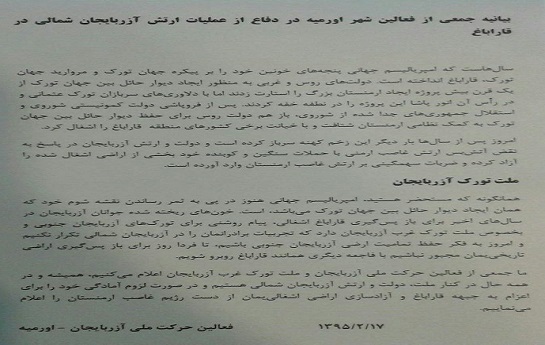 بیانیه جمعی از فعالین شهر اورمیه در دفاع از عملیات ارتش آزربایجان شمالی در
قاراباغ
سال‌هاست که امپریالیسم جهانی پنجه‌های خونین خود را بر پیکره جهان تورک و مروارید جهان
تورک، قاراباغ انداخته است. دولت‌های روس و غربی به منظور ایجاد دیوار حائل بین جهان تورک از
یک قرن پیش پروژه ایجاد ارمنستان بزرگ را استارت زدند اما با دلاوری‌های سربازان تورک عثمانی و
در رأس آن انور پاشا این پروژه را در نطفه خفه کردند. پس از فروپاشی دولت کمونیستی شوروی و
استقلال جمهوری‌های جدا شده از شوروی، باز هم دولت روس برای حفظ دیوار حائل بین جهان
تورک به کمک نظامی ارمنستان شتافت و با خیانت برخی کشورهای منطقه قاراباغ را اشغال کرد.
امروز پس از سال‌ها بار دیگر این زخم کهنه سرباز کرده است و دولت و ارتش آزربایجان در پاسخ به
نقض آتش‌بس ارتش غاصب ارمنی با حملات سنگین و کوبنده خود بخشی از اراضی اشغال شده را
آزاد کرده و ضربات سهمگینی بر ارتش غاصب ارمنستان وارد آورده است.
ملت تورک آزربایجان
همانگونه که مستحضر هستید، امپریالیسم جهانی هنوز در پی به ثمر رساندن نقشه شوم خود که
همان ایجاد دیوار حائل بین جهان تورک می‌باشد، است. خون‌های ریخته شده جوانان آزربایجان در
سال‌های اخیر برای باز پس‌گیری قاراباغ اشغالی، پیام روشنی برای تورک‌های آزربایجان جنوبی و
بخصوص ملت تورک غرب آزربایجان دارد که تجربیات برادرانمان را در آزربایجان شمالی تکرار نکنیم
و امروز به فکر حفظ تمامیت ارضی آزربایجان جنوبی باشیم، تا فردا روز برای باز پس‌گیری اراضی
تاریخی‌مان مجبور نباشیم با فاجعه دیگری همانند قاراباغ روبرو شویم.
ما جمعی از فعالین حرکت ملی آزربایجان و ملت تورک غرب آزربایجان اعلام می‌کنیم، همیشه و در
همه حال در کنار ملت، دولت و ارتش آزربایجان شمالی هستیم و در صورت لزوم آمادگی خود را برای
اعزام به جبهه قاراباغ و آزادسازی اراضی اشغالی‌مان از دست رژیم غاصب ارمنستان را اعلام
می‌نماییم.
۱۳۹۵/۲/۱۷ فعالین حرکت ملی آزربایجان – اورمیه